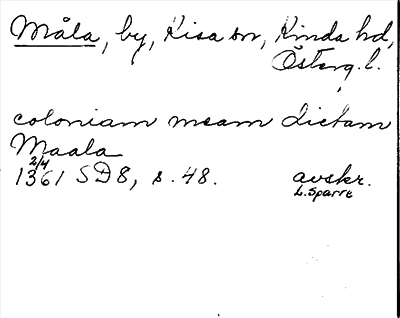 Måla, by, Kisa sn, Kinda hd,
Österg. l.
coloniam meam dictam
Maala
2/4
1361 SD8, s. 48. avskr.
L. Sparre